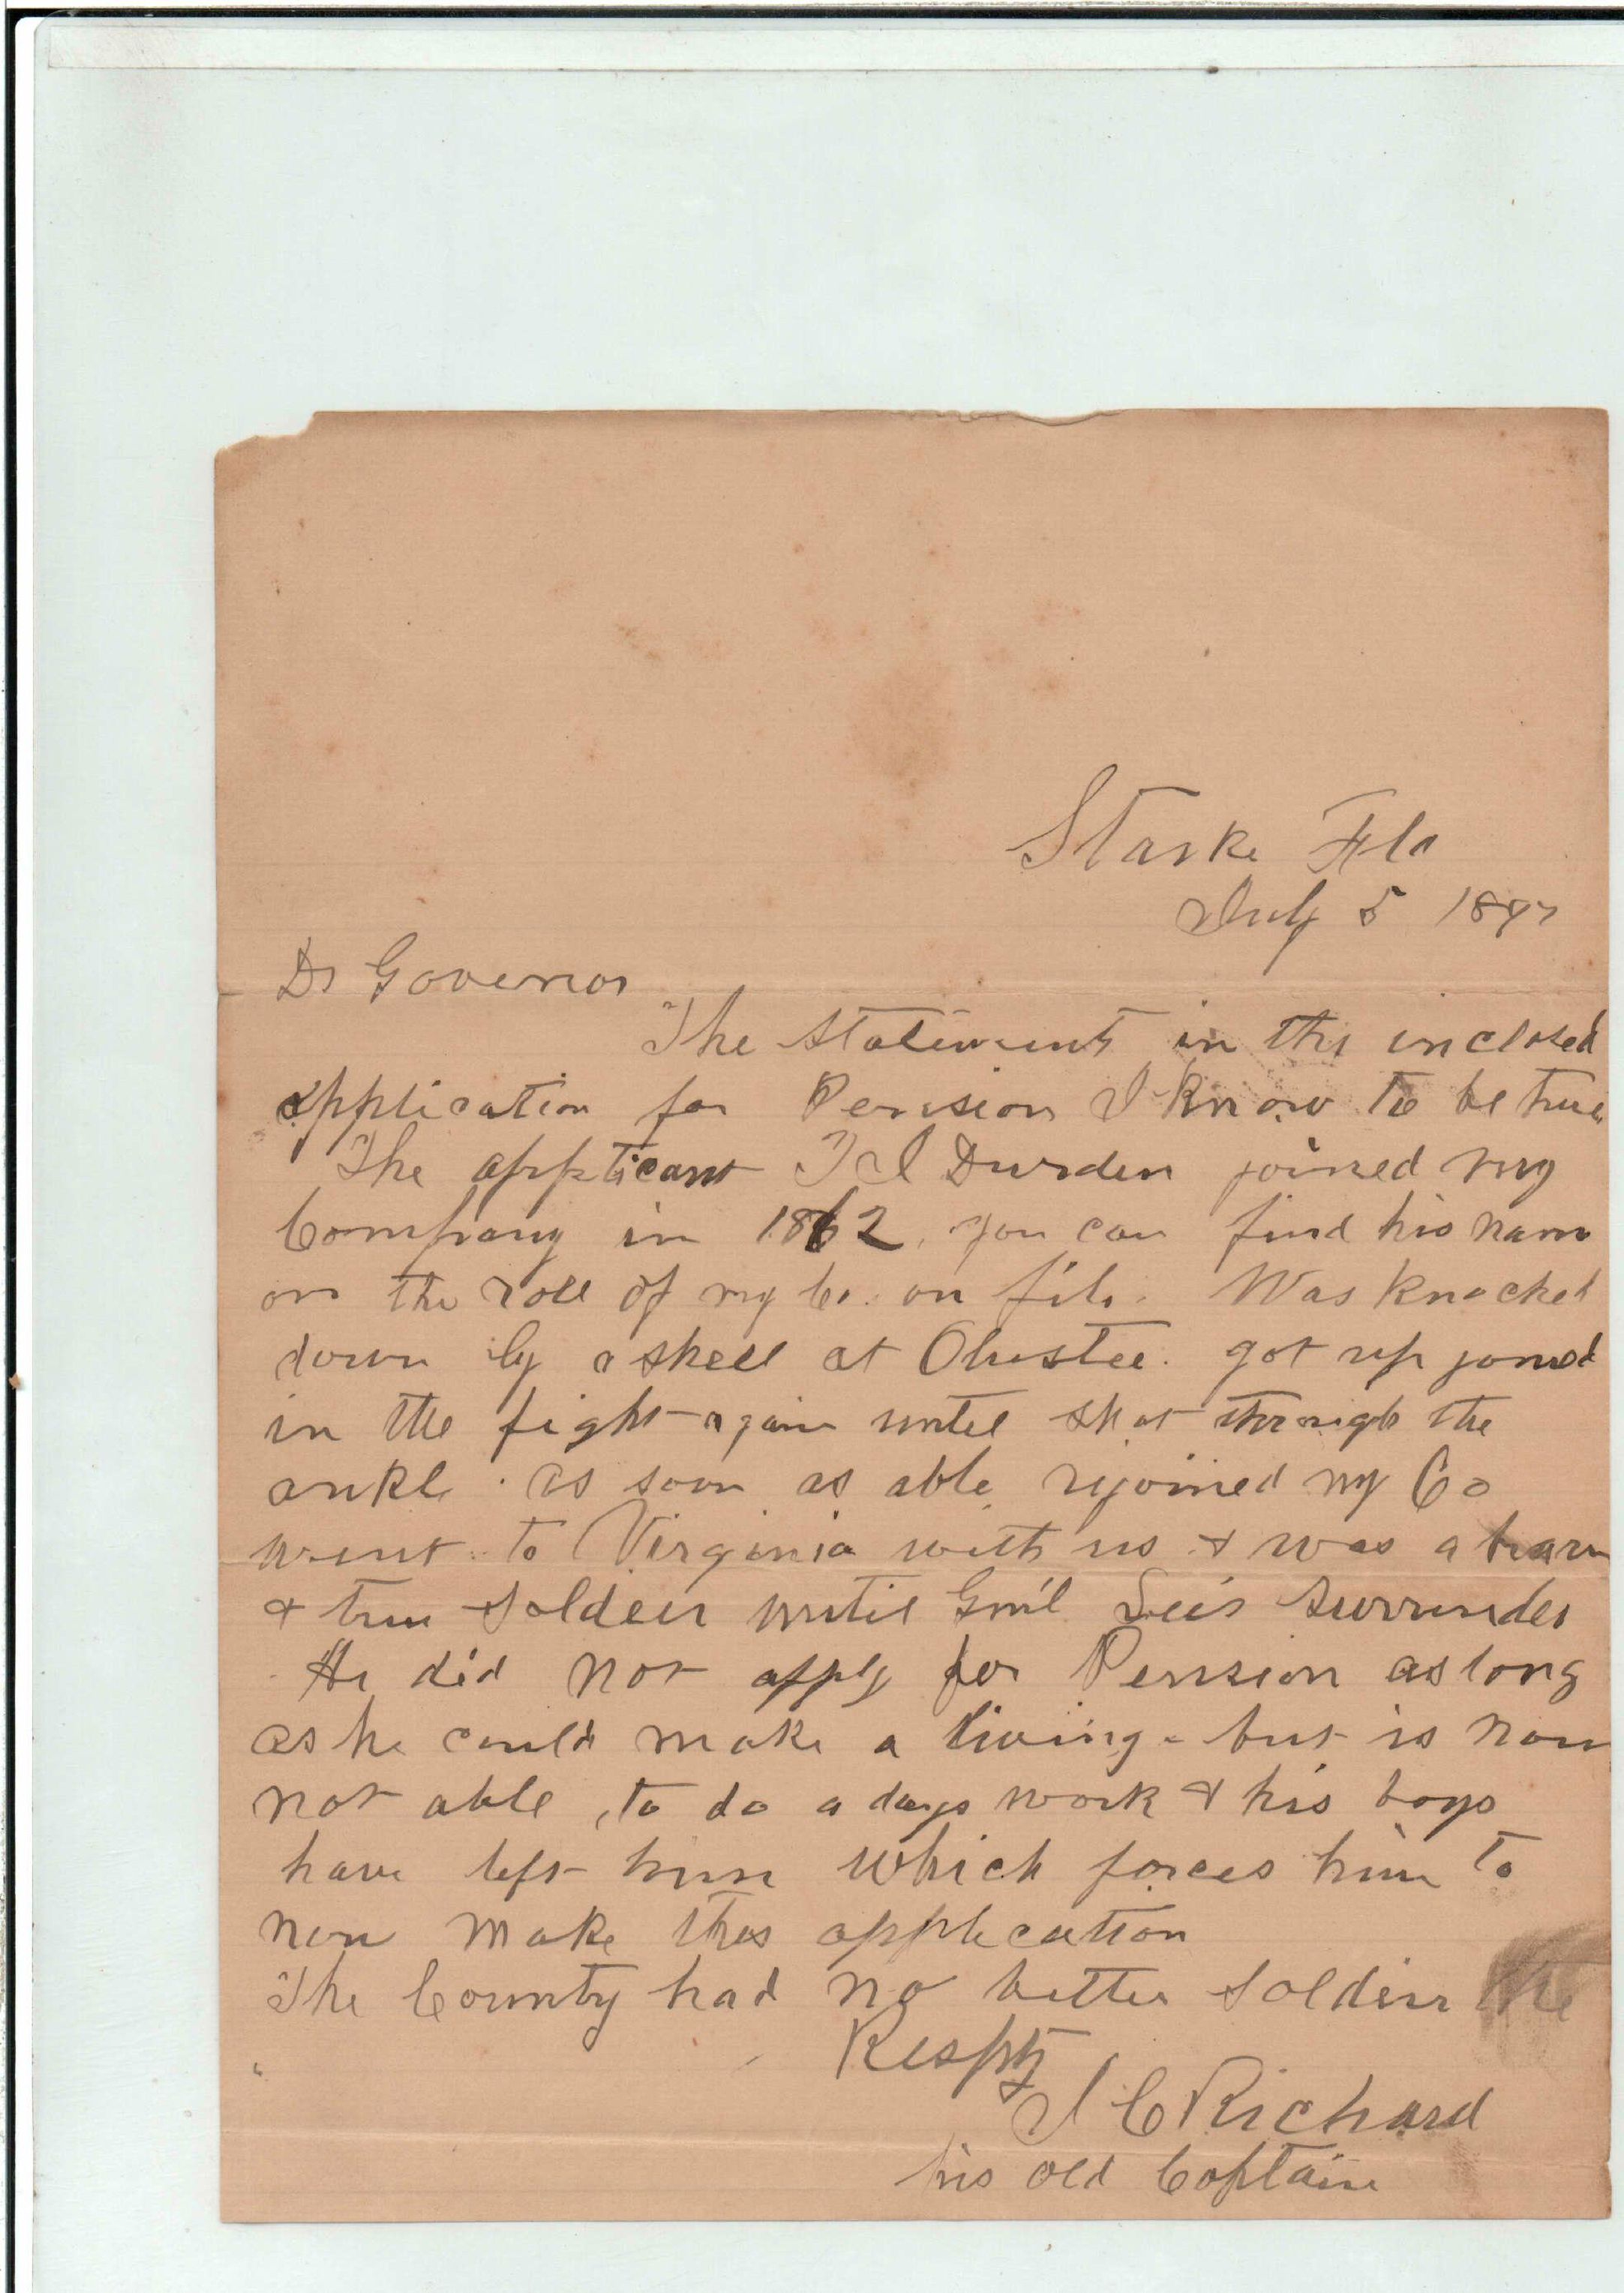 Starke Fla
July 5 1897
Dr Governor
The statements in this inclosed
application for Pension I know to be true
The applicant T J Durden joined my
Company in 1862, you can find his nam
on the roll of my Co. on file. Was knocked
down by a shell at Olustee. got up joined
in the fight again until shot through the
ankle. as soon as able rejoined my Co
went to Virginia with us & was a brave
& true soldeir until Gen'l Lee's surrender
He did not apply for Pension as long
as he could make a living - but is now
not able, to do a days work & his boys
have left him which forces him to
now make this application
The County had no better soldeir
Respty
J C Richard
his old Captain